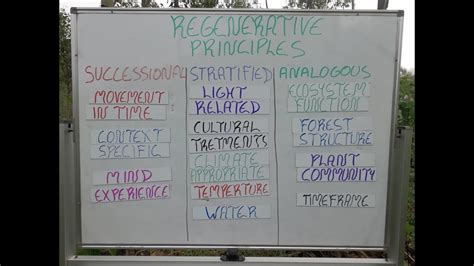 REGENERATIVE
PRINCIPLES
SUCCESSIONAL
MOVEMENT
IN TIME
CONTEXT
SPECIFIC
MIND
EXPERIENCE
STRATIFIED
LIGHT
RELATED
CULTURAL
TRETMENTS
CLIMATE
APPROPRIATE
TEMPERTURE
WATER
ANALOGOUS
ECOSYSTEM
FUNCTION
FOREST
STRUCTURE
PLANT
COMMUNITY
TIMEFRAME